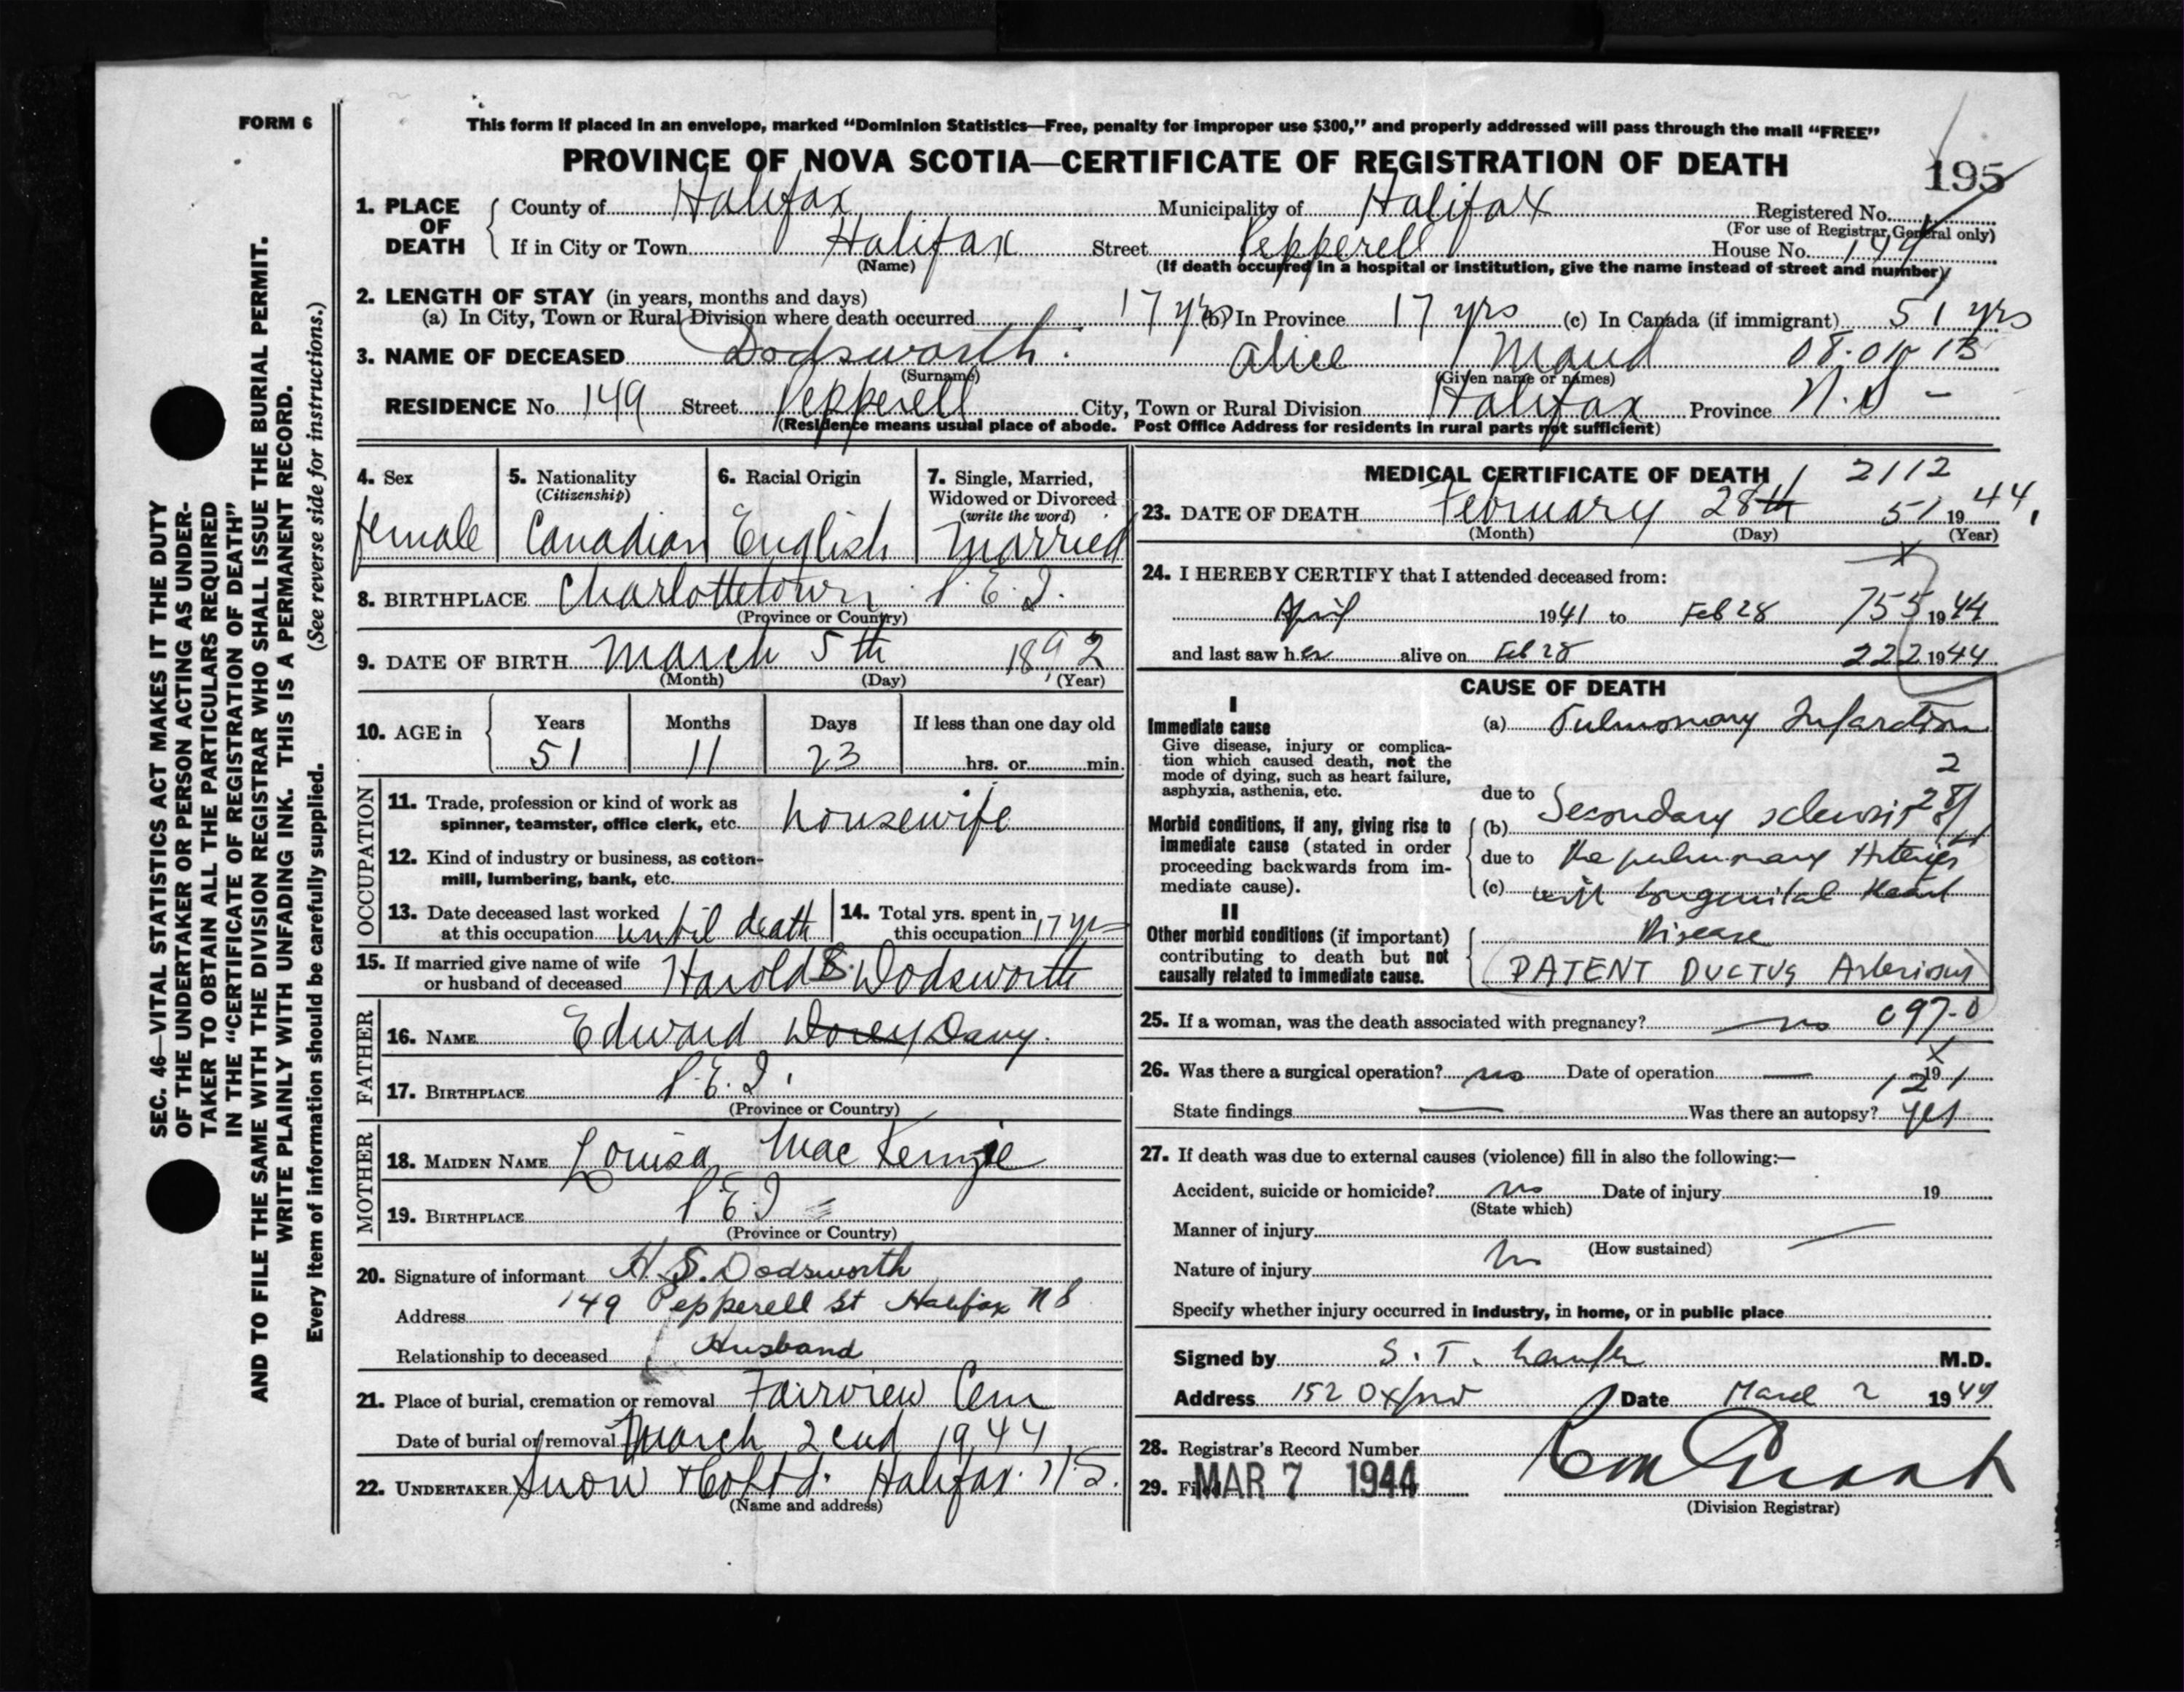 FORM 6
This form if placed in an envelope, marked “Dominion Statistics—Free, penalty for improper use $300,” and properly addressed will pass through the mail “FREE”
PROVINCE OF NOVA SCOTIA—CERTIFICATE OF REGISTRATION OF DEATH
195
1. PLACE OF DEATH { County of Halifax Municipality of Halifax Registered No.
(For use of Registrar General only)
If in City or Town Halifax Street Pepperell House No.
(Name)
(If death occurred in a hospital or institution, give the name instead of street and number)
2. LENGTH OF STAY (in years, months and days)
(a) In City, Town or Rural Division where death occurred 17 yrs (b) In Province 17 yrs (c) In Canada (if immigrant) 51 yrs
3. NAME OF DECEASED Dodsworth. Alice Maud
(Surname) (Given name or names)
RESIDENCE No. 149 Street Pepperell City, Town or Rural Division Halifax Province N.S –
(Residence means usual place of abode. Post Office Address for residents in rural parts not sufficient)
4. Sex 5. Nationality (Citizenship) 6. Racial Origin 7. Single, Married, Widowed or Divorced (write the word)
female Canadian English Married
8. BIRTHPLACE Charlottetown P.E.I.
(Province or Country)
9. DATE OF BIRTH March 5th 1892
(Month) (Day) (Year)
10. AGE in { Years Months Days If less than one day old
51 11 23 hrs. or min.
OCCUPATION
11. Trade, profession or kind of work as
spinner, teamster, office clerk, etc. housewife
12. Kind of industry or business, as cotton-
mill, lumbering, bank, etc.
13. Date deceased last worked
at this occupation until death
14. Total yrs. spent in
this occupation 17 yrs
15. If married give name of wife
or husband of deceased Harold S. Dodsworth
FATHER
16. NAME Edward Dorey Davy.
17. BIRTHPLACE P.E.I.
(Province or Country)
MOTHER
18. MAIDEN NAME Louisa MacKenzie
19. BIRTHPLACE P.E.I
(Province or Country)
20. Signature of informant H.S. Dodsworth
Address 149 Pepperell St Halifax NS
Relationship to deceased Husband
21. Place of burial, cremation or removal Fairview Cem
Date of burial or removal March 2cnd 1944
22. UNDERTAKER Snow & Co Ltd. Halifax. N.S.
(Name and address)
MEDICAL CERTIFICATE OF DEATH 2112
23. DATE OF DEATH February 28th 51 1944.
(Month) (Day) (Year)
24. I HEREBY CERTIFY that I attended deceased from:
April 1941 to Feb 28 755 1944
and last saw her alive on Feb 28 222 1944
CAUSE OF DEATH
I
Immediate cause
Give disease, injury or complica-
tion which caused death, not the
mode of dying, such as heart failure,
asphyxia, asthenia, etc.
(a) Pulmonary Infarction
2
Morbid conditions, if any, giving rise to
immediate cause (stated in order
proceeding backwards from im-
mediate cause).
due to Secondary
(b)
due to the pulmonary Arteries
(c) with Congenital Heart
II
Other morbid conditions (if important)
contributing to death but not
causally related to immediate cause.
Disease
PATENT DUCTUS Arteriosus
25. If a woman, was the death associated with pregnancy? no 097-0
26. Was there a surgical operation? no Date of operation — 19
121
State findings — Was there an autopsy? yes
27. If death was due to external causes (violence) fill in also the following:—
Accident, suicide or homicide? no Date of injury 19
(State which)
Manner of injury
(How sustained)
Nature of injury no
Specify whether injury occurred in industry, in home, or in public place
Signed by S. T. M.D.
Address 152 Oxford Date March 2 1944
28. Registrar's Record Number
29. Filed MAR 7 1944
(Division Registrar)
SEC. 46—VITAL STATISTICS ACT MAKES IT THE DUTY
OF THE UNDERTAKER OR PERSON ACTING AS UNDER-
TAKER TO OBTAIN ALL THE PARTICULARS REQUIRED
IN THE “CERTIFICATE OF REGISTRATION OF DEATH”
AND TO FILE THE SAME WITH THE DIVISION REGISTRAR WHO SHALL ISSUE THE BURIAL PERMIT.
WRITE PLAINLY WITH UNFADING INK. THIS IS A PERMANENT RECORD.
Every item of information should be carefully supplied. (See reverse side for instructions.)